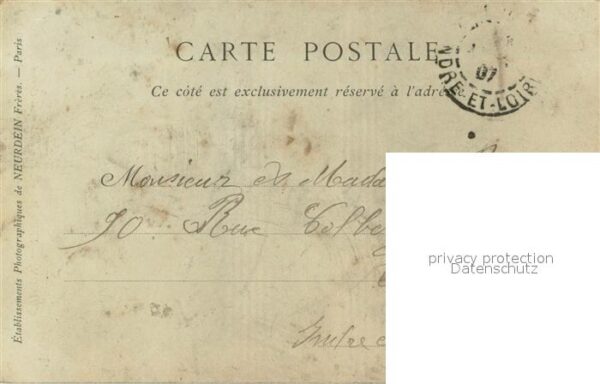 CARTE POSTALE
Ce côté est exclusivement réservé à l'adresse
NDRE-ET-LOIR
07
Établissements Photographiques de NEURDEIN Frères. — Paris
Monsieur & Mada
90 Rue Colbe
Indre
privacy protection
Datenschutz